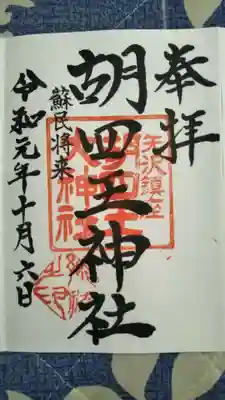 奉拝
矢沢鎮座
胡四王神社
蘇民将来
令和元年十月六日